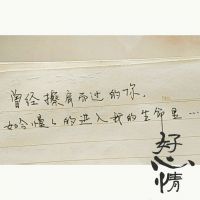 曾经擦肩而过的你.
如今慢慢的进入我的生命里…
好心情